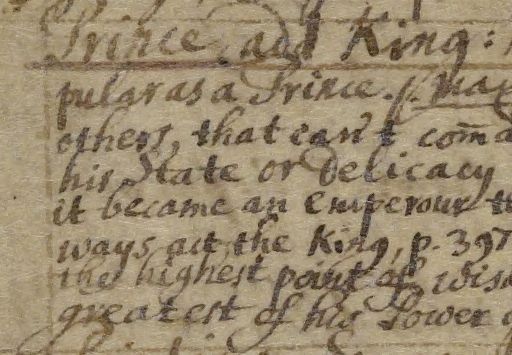 Prince, and King:
pular as a Prince. p. max
others, that can't com̄a
his State or delicacy
it became an emperour th
ways act the King, p. 397
the highest point of wisd
greatest of his Power